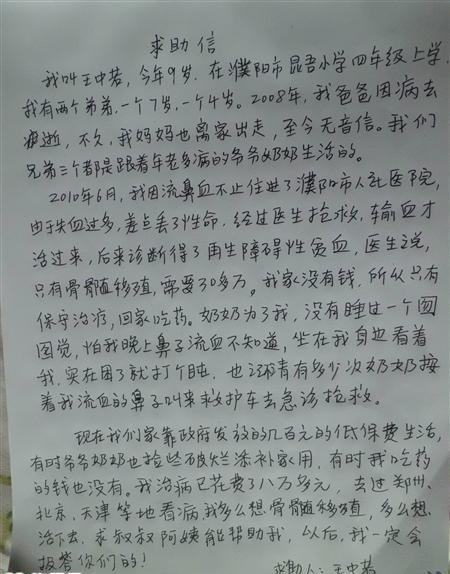 求助信
我叫王中若,今年9岁.在濮阳市昆吾小学四年级上学.
我有两个弟弟,一个7岁.一个4岁。2008年,我爸爸因病去
逝,不久,我妈妈也离家出走,至今无音信。我们
兄弟三个都是跟着年老多病的爷爷奶奶生活的。
2010年6月,我因流鼻血不止住进了濮阳市人民医院,
由于失血过多,差点丢了性命,经过医生抢救,输血才
活过来,后来诊断得了再生障碍性贫血,医生说,
只有骨髓植移殖,需要30多万。我家没有钱,所以只有
保守治疗,回家吃药。奶奶为了我,没有睡过一个囫
囵觉,怕我晚上鼻子流血不知道,坐在我身边看着
我,实在困了就打个盹,也不清有多少次奶奶按
着我流血的鼻子叫来救护车去急诊抢救。
现在我们家靠政府发放的几百元的低保费生活,
有时爷爷奶奶也捡些破烂添补家用,有时我吃药
的钱也没有。我治病已花费了八万多元,去过郑州、
北京、天津等地看病,我多么想骨髓移殖,多么想
活下去,求叔叔阿姨能帮助我,以后,我一定会
报答你们的!
求助人:王中若